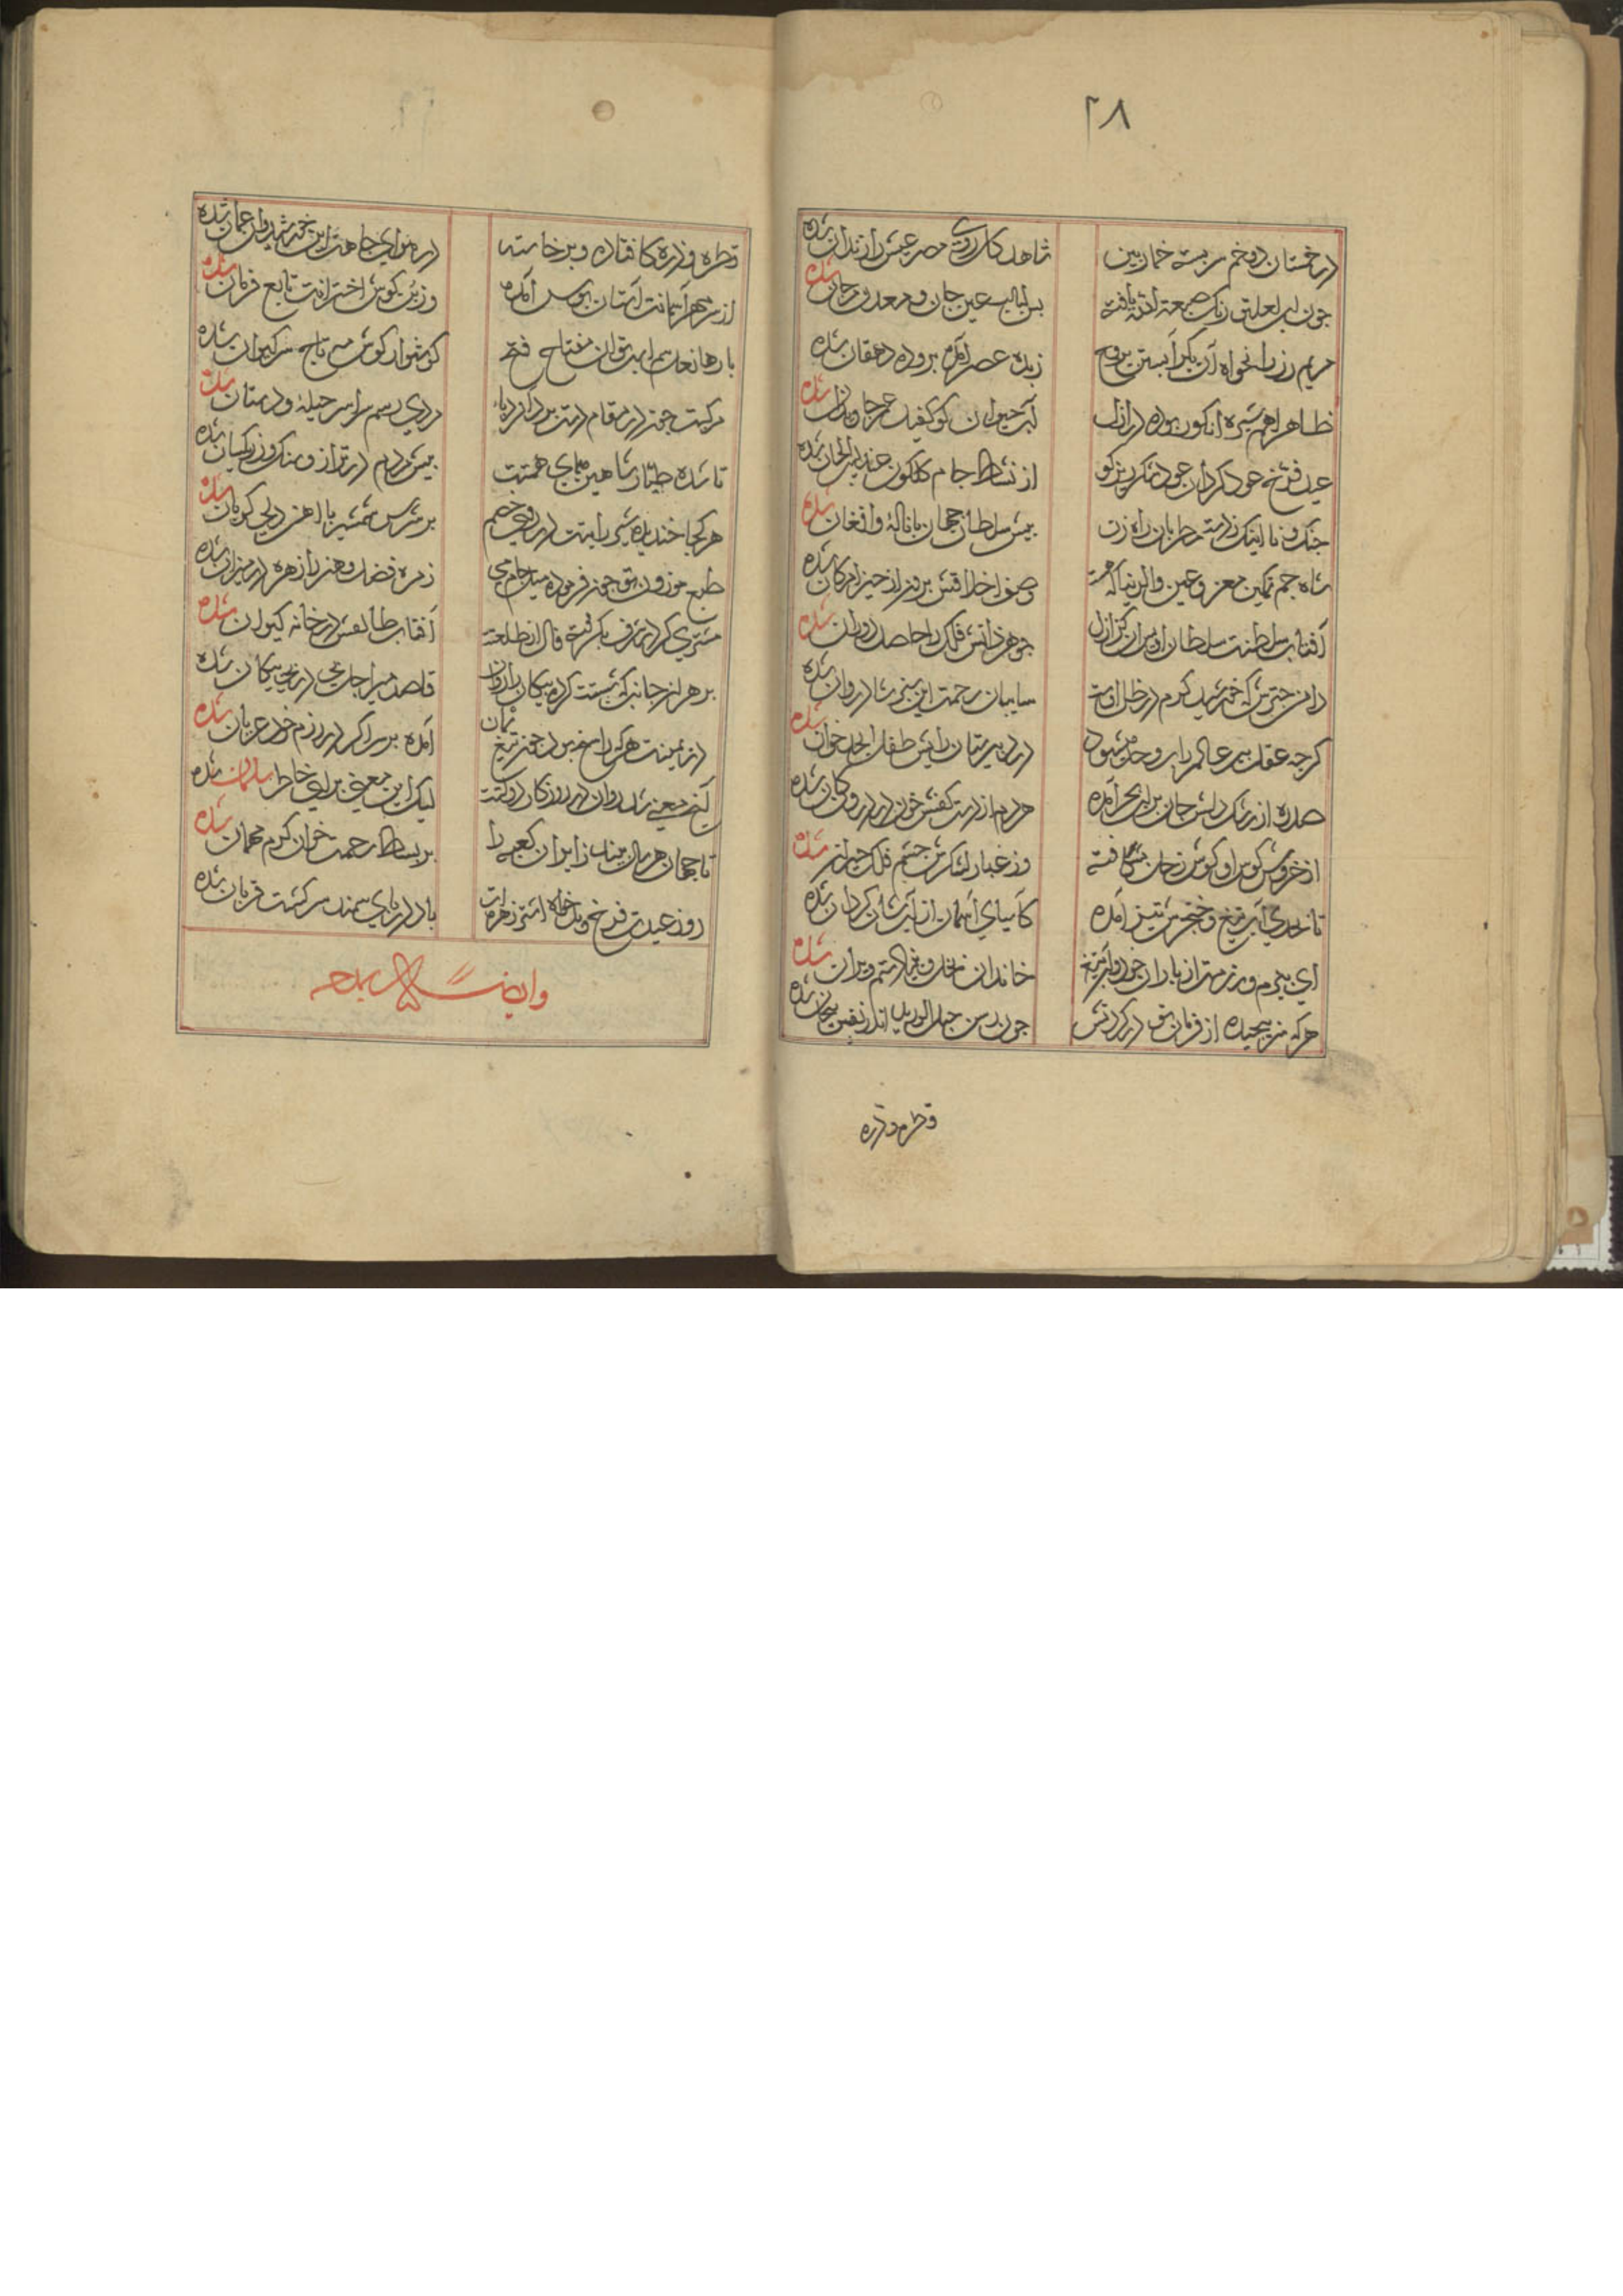 ۲۸
در خمستان دو خم سربسته خمار بین شاهد کل روی مصر عیش را زندان شده
چون لب لعلین رنگ جمعه یافته بس لبالب عین جان و معدن مرجان شده
مریم رز را نخواه آن بکر آبستن بروح زبده عصر آمده پرورده دهقان شده
ظاهرا هم شیره انکور بوده در ازل آب حیوان کو کفیل عمر جاویدان شده
عید فرخ عود کردان عود از نشاط جام کلکون عندلیب الحان شده
چنک و نا اینک ز دست مطربان راه زن پیش سلطان جهان با ناله و افغان شده
شاه جم تمکین معز و عین والدنیا که هست وصف اخلاقش برون از حیز امکان شده
آفتاب سلطنت سلطان اویس آن کز ازل جوهر ذاتش فلک را حاصل دوران شده
دامن چترش که خورشید کرم در ظل اوست سایبان رحمت این شادروان شده
کرچه عقل پیر عالم را بروحد میشود در دبیرستان رایش طفل ابجد خوان شده
صدره از رشک دلش جان بر لب بحر آمده هر دم از دست کفش خون در درون کان شده
از خروش کوس او کوش زحل بشکافته وز غبار لشکرش چشم فلک حیران شده
تا بحدی آب تیغ و خنجرش تیز آمده کآسیای آسمان از آبشان کردان شده
ای ببزم و رزمت از باران جود و ابر تیغ خاندان بخل و بنیاد ستم ویران شده
هرکه سر پیچیده از فرمان تو در کردنش چون رسن حبل الورید اندر پیچان شده
قطره و ذره
قطره و ذره کافتاده و برخاسته در هوای جاهت این خورشید وان عمان شده
از سپهر آستانت آستان بوس آمده وز بن کوش اخترانت تابع فرمان شده
بارها نعل سم اسب تو آن مفتاح فتح کوشوار کوش مه تاج سر کیوان شده
مرکبت چون در مقام دست برد آورده پا مردی رستم سراسر حیله و دستان شده
تا شده طیار شاهین همای همتت پیش مردم در ترازو سنک و زر یکسان شده
هر کجا خندیده شیر رایتت در روی خصم بر سرش شمشیر با آهن دلی کریان شده
طبع موزون تو چون فرموده میل جام می زهره فضل و هنر را زهره در میزان شده
مشتری کرده شرف با کرفته فال از طلعتت آفتاب طالعش در خانه کیوان شده
بر هر از جانب که شستت کرده پیکان را روان قاصد میر اجل در پی پیکان شده
در یمینت هر که را سر بود چون تیغ یمان آمده بر سر اکر در رزم خود عریان شده
کنج معنی شد روان در روزکار دولتت لیک این معنی برای خاطر سلمان شده
تا جهان هر سال بیند زایران کعبه را بر بساط رحمت خوان کرم مهمان شده
روز عیدت فرخ و بدخواه اشتر زهره ات باد در پای سمند سرکشت قربان شده
وایضا له یمدحه